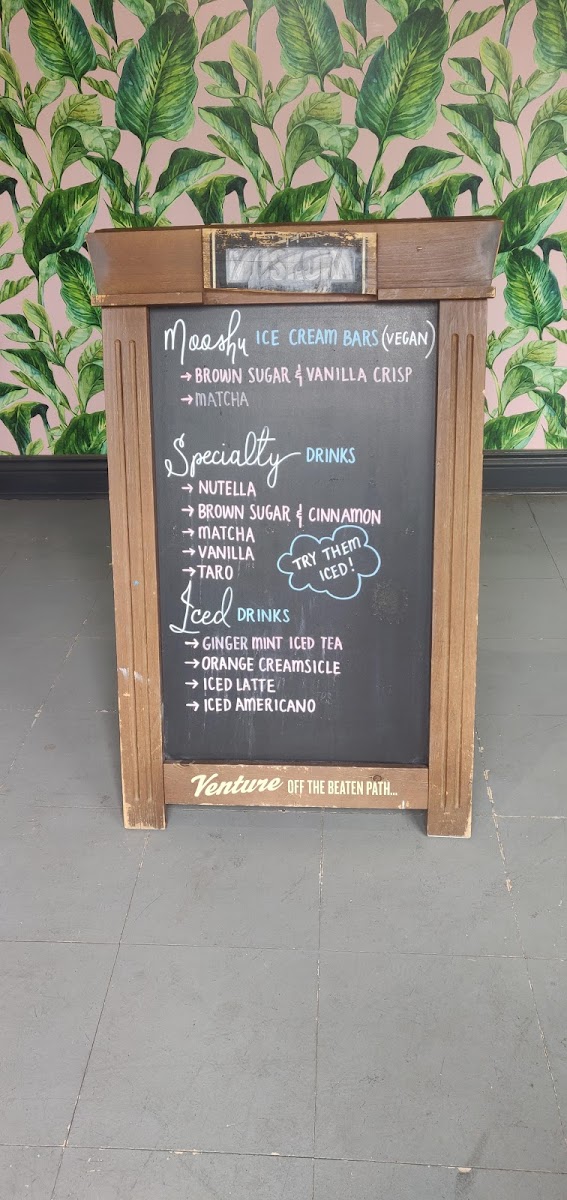 Mooshu ICE CREAM BARS (VEGAN)
→ BROWN SUGAR & VANILLA CRISP
→ MATCHA
Specialty DRINKS
→ NUTELLA
→ BROWN SUGAR & CINNAMON
→ MATCHA
→ VANILLA
→ TARO
TRY THEM
ICED!
Iced DRINKS
→ GINGER MINT ICED TEA
→ ORANGE CREAMSICLE
→ ICED LATTE
→ ICED AMERICANO
Venture OFF THE BEATEN PATH...